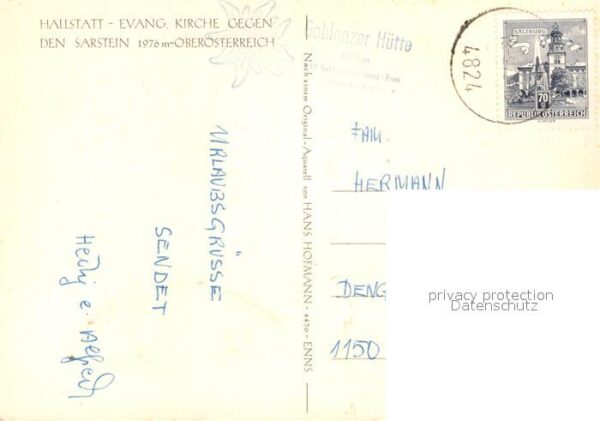 HALLSTATT - EVANG. KIRCHE GEGEN
DEN SARSTEIN 1976 m-OBERÖSTERREICH
Gablonzer Hütte
Nach einem Original-Aquarell von HANS HOFMANN - 4470 - ENNS
URLAUBSGRÜSSE
SENDET
4824
SALZBURG
70
REPUBLIK ÖSTERREICH
FAM.
HERMANN
DENG
1150
privacy protection
Datenschutz